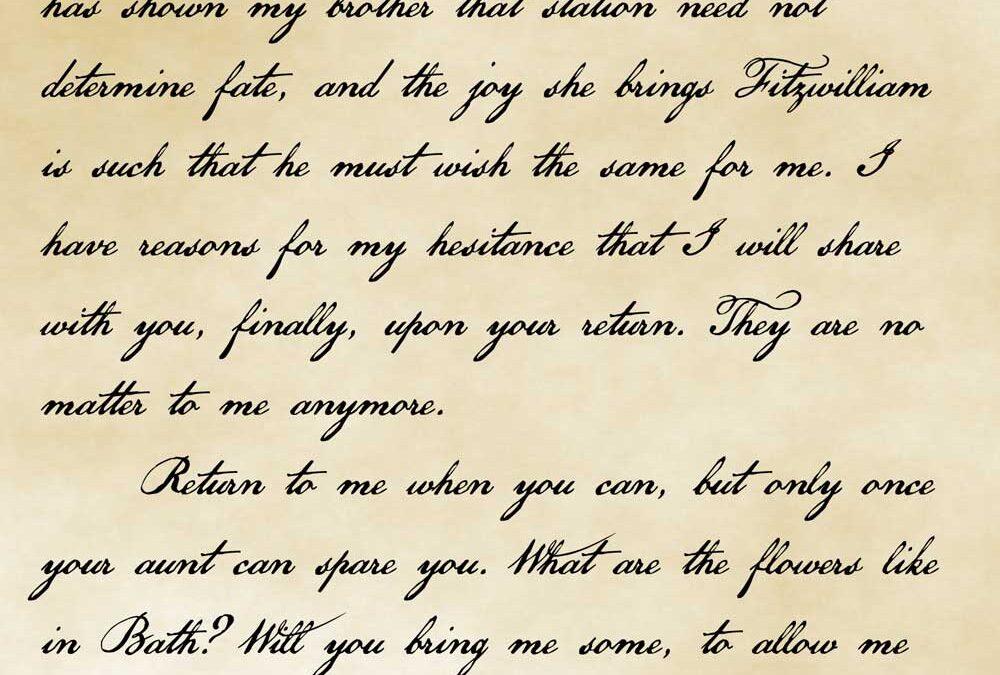 has shown my brother that station need not
determine fate, and the joy she brings Fitzwilliam
is such that he must wish the same for me. I
have reasons for my hesitance that I will share
with you, finally, upon your return. They are no
matter to me anymore.
Return to me when you can, but only once
your aunt can spare you. What are the flowers like
in Bath? Will you bring me some, to allow me